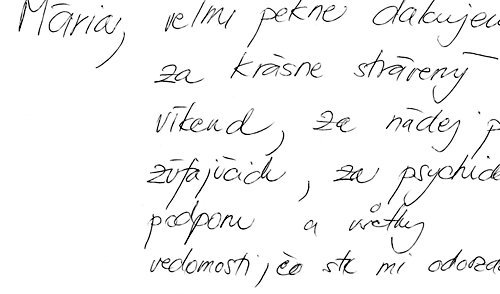 Mária, veľmi pekne ďakujem
za krásne strávený
víkend, za nádej p
zúfajúcich, za psychick
podporu a všetky
vedomosti, čo ste mi odovzda